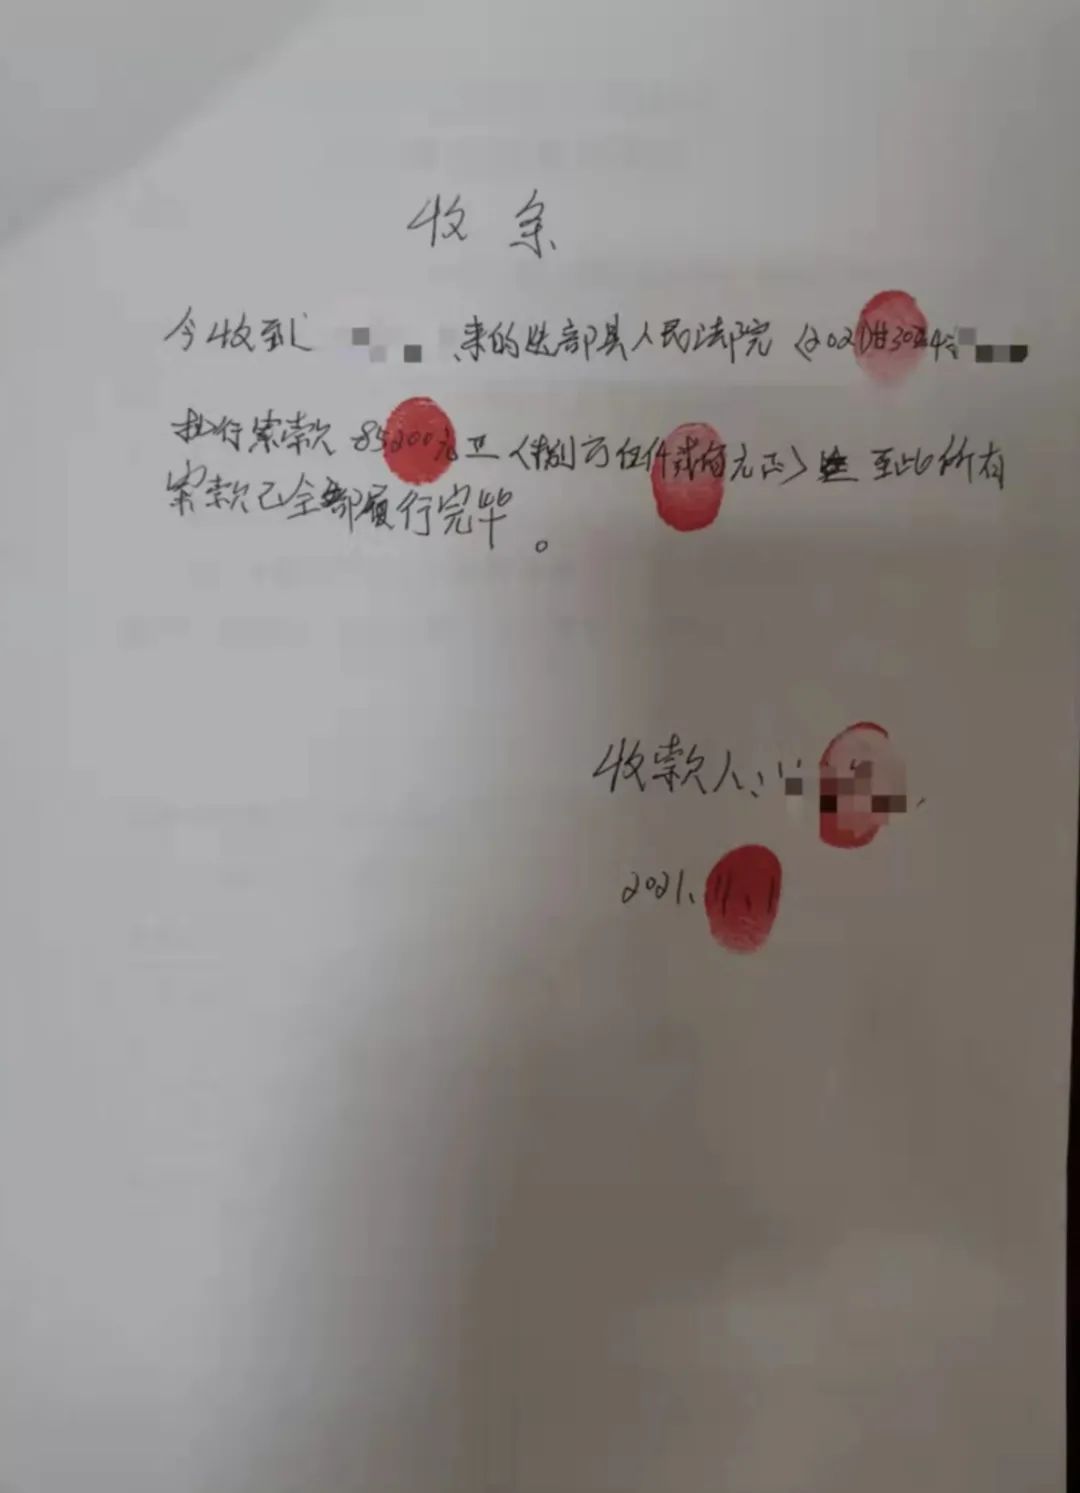 收条
今收到 来的迭部县人民法院(2021)甘3024
执行案款85200元正(捌万伍仟贰佰元正)至此所有
案款已全部履行完毕。
收款人:
2021.11.1